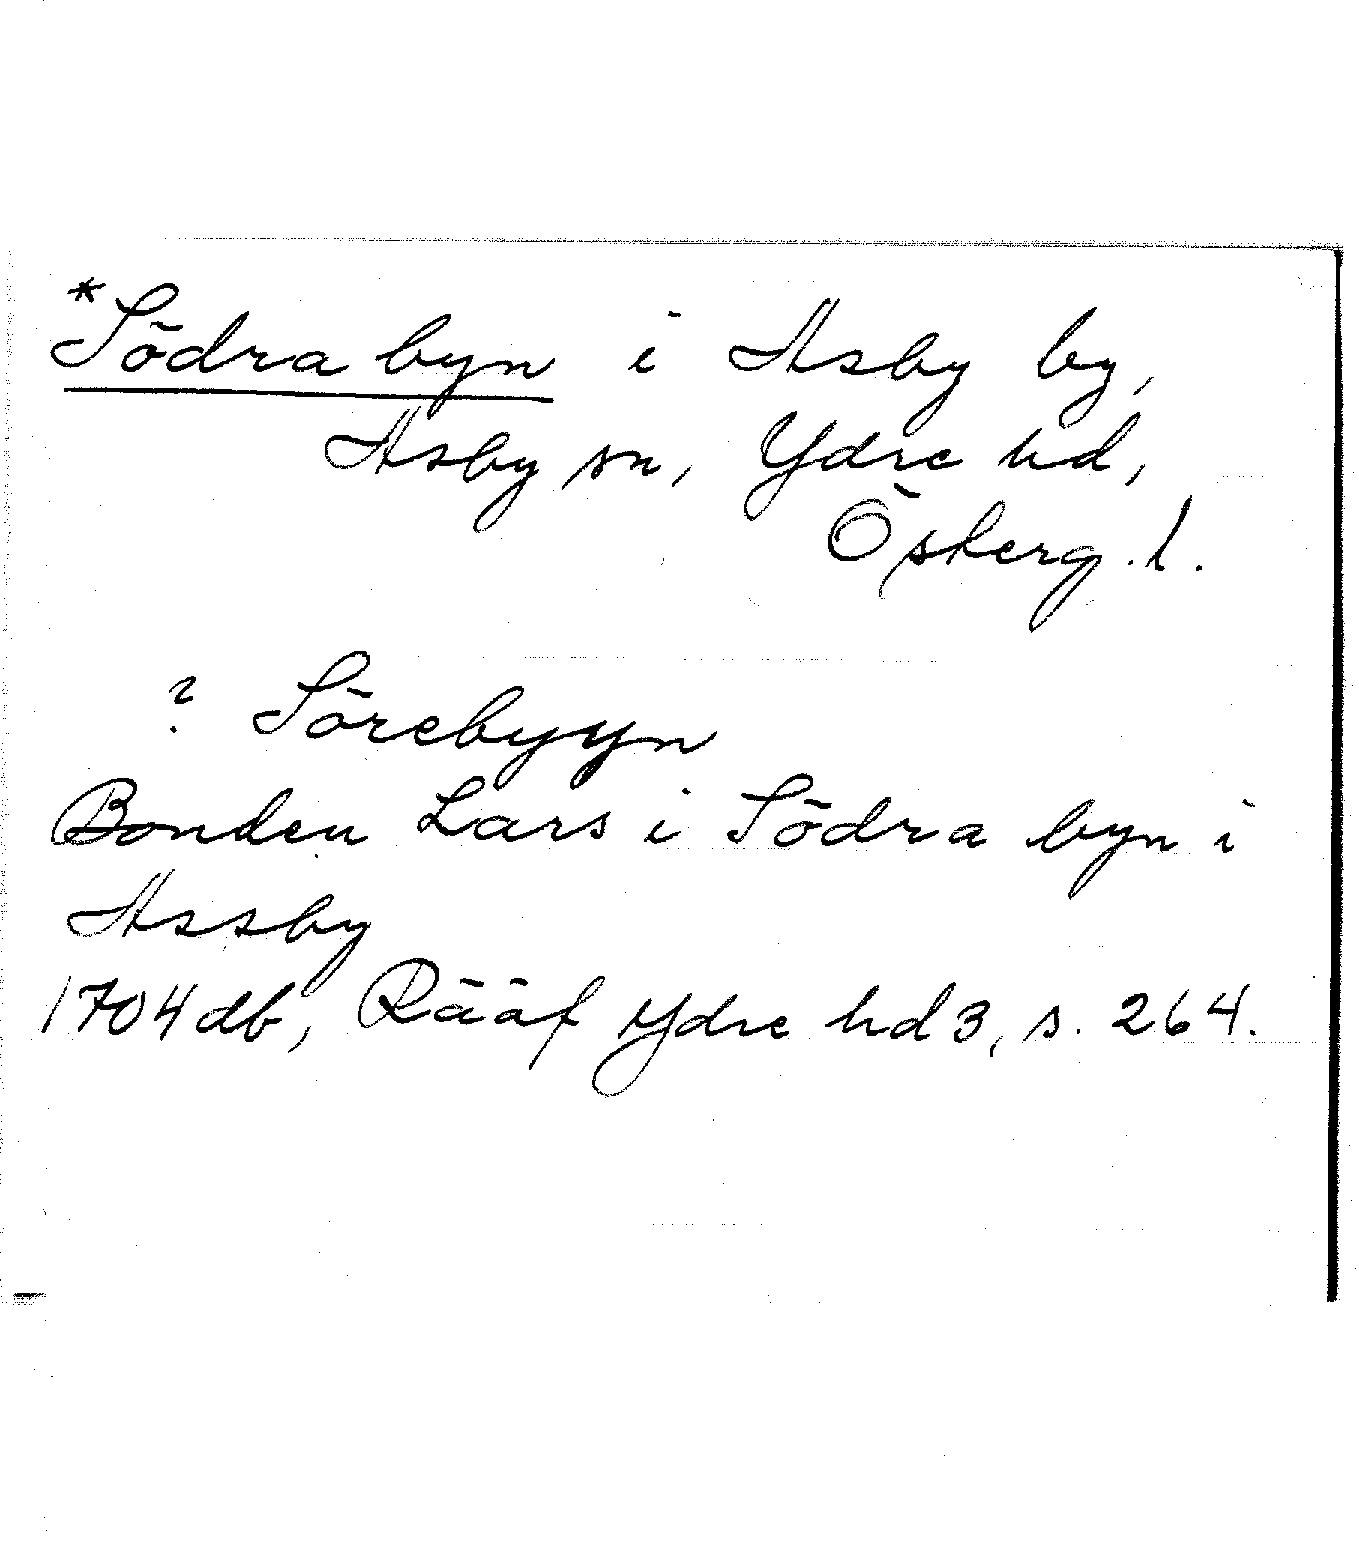 *Södra byn i Asby by,
Asby sn, Ydre hd,
Östergl.
? Sörebyyn
Bonden Lars i Södra byn i
Assby
1704 db, Rääf Ydre hd 3, s. 264.